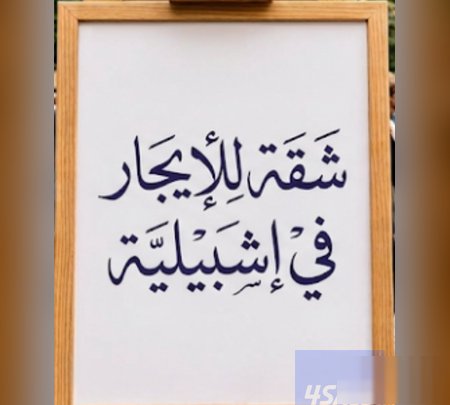 شَقَة لِلإيجَار
فيْ إشبَيْليَّة
4S